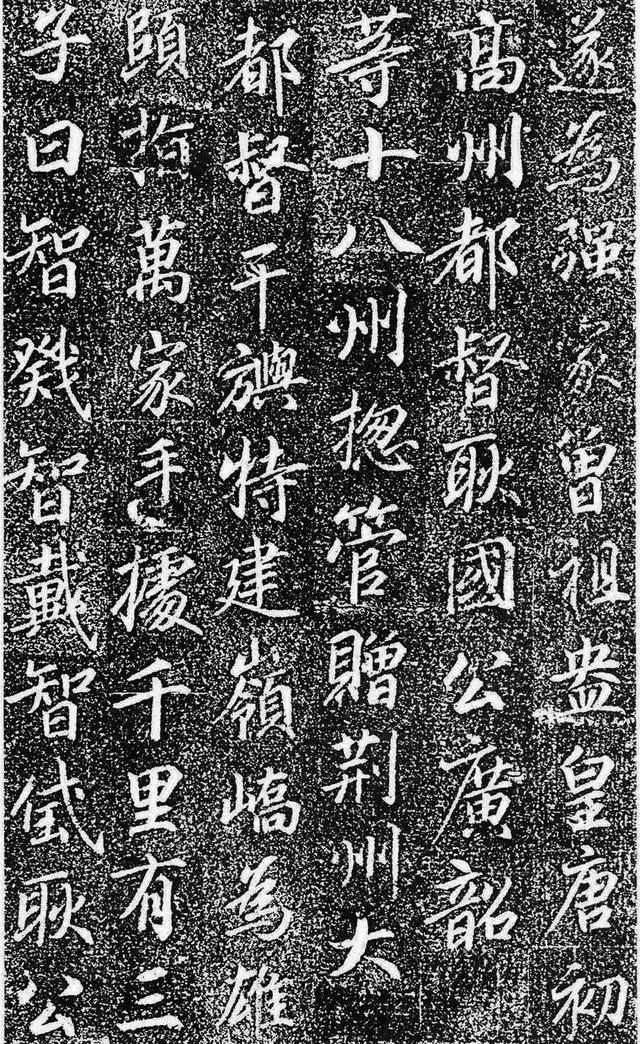 遂為强家曾祖盎皇唐初
高州都督耿國公廣韶
等十八州揔管贈荆州大
都督干旟特建嶺嶠為雄
頤指萬家手據千里有三
子曰智戣智戴智耿公